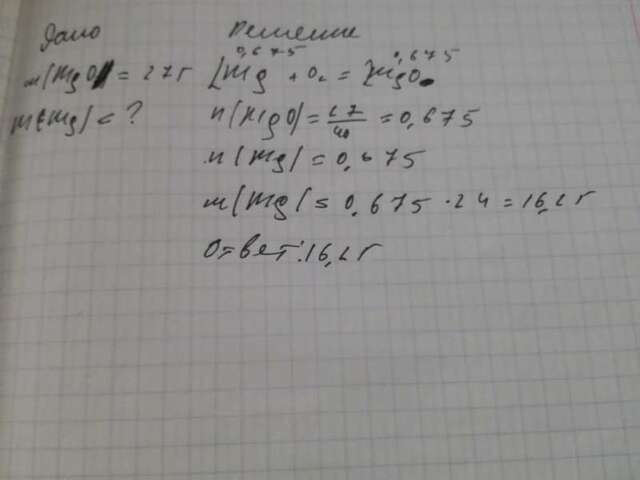 Дано
m(MgO) = 27г
m(Mg) = ?
Решение
0,675 0,675
2Mg + O₂ = 2MgO
n(MgO) = 27/40 = 0,675
n(Mg) = 0,675
m(Mg) = 0,675 · 24 = 16,2г
Ответ: 16,2г